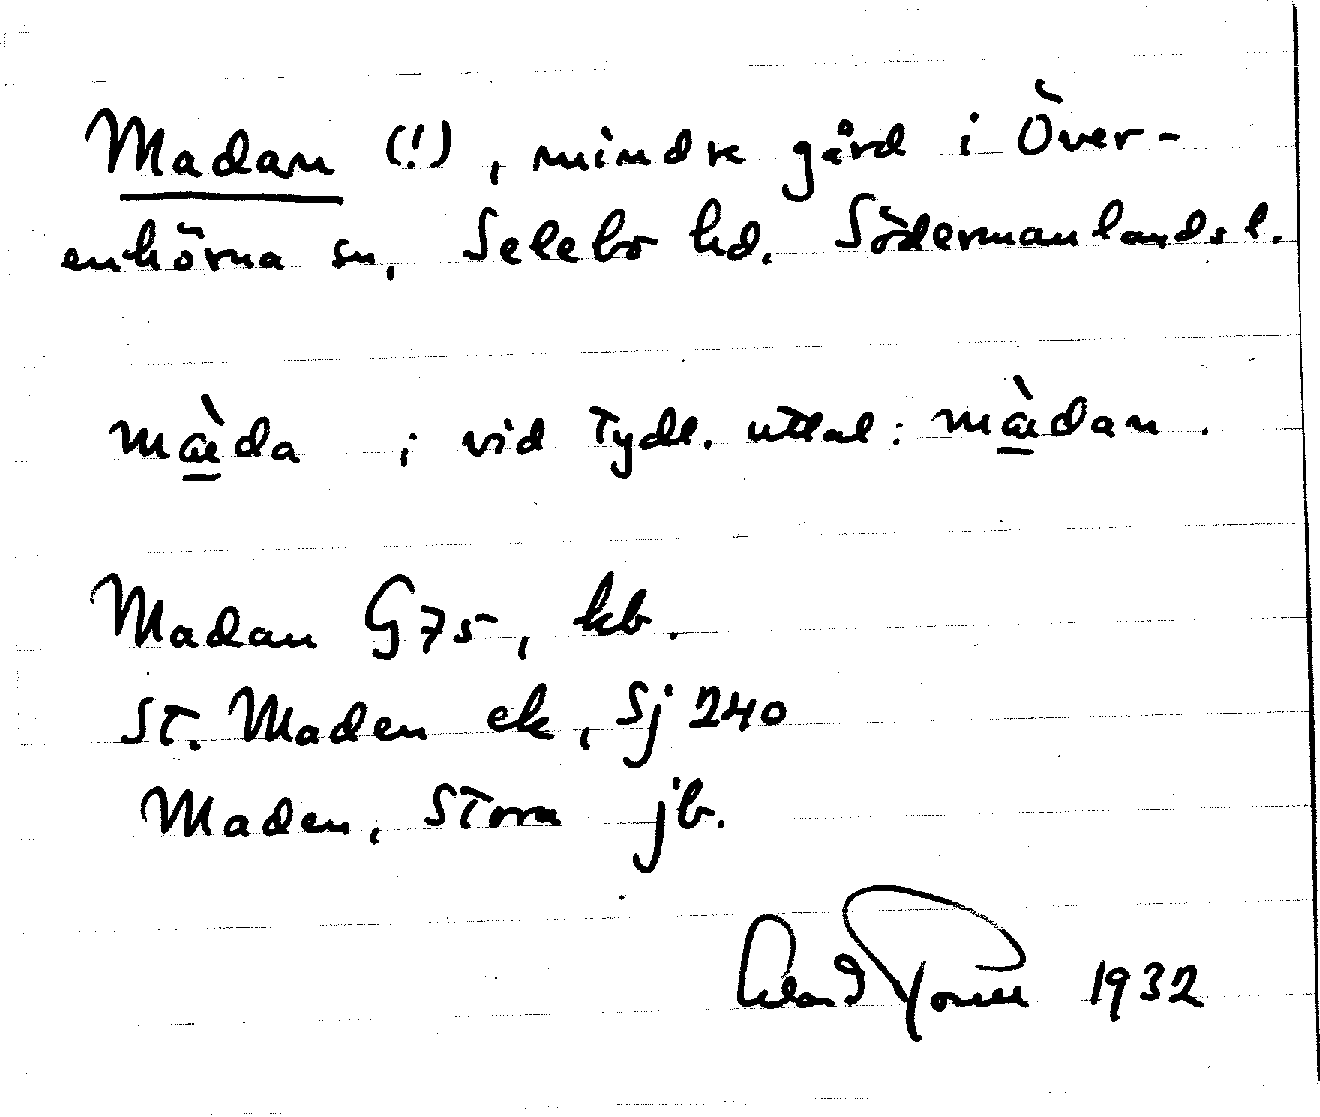 Madan (!), mindre gård i Över-
enhörna sn, Selebo hd. Södermanlands l.
mæ̀da ; vid tydl. uttal: mæ̀dan.
Madan G75, kb.
St. Maden ek, Sj 240
Maden, Stora jb.
1932